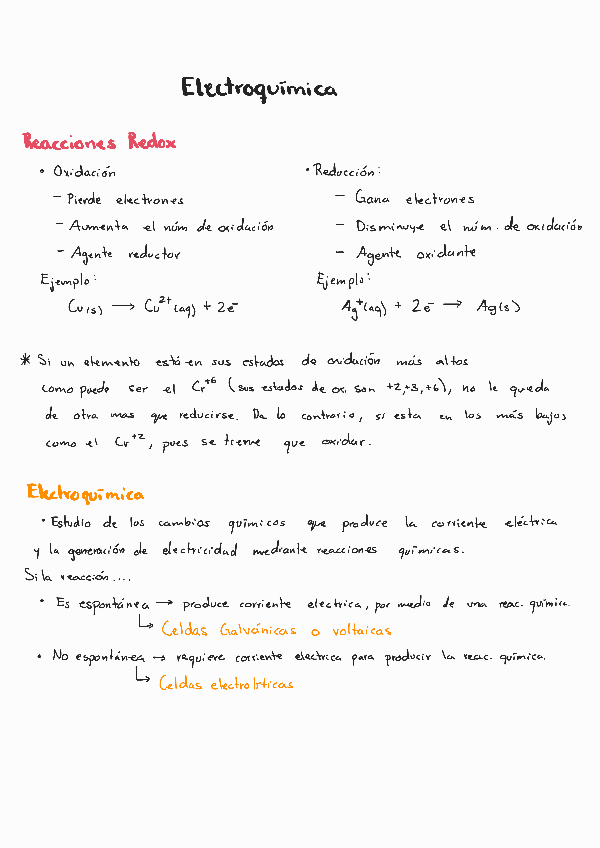 Electroquímica
Reacciones Redox
• Oxidación
– Pierde electrones
– Aumenta el núm de oxidación
– Agente reductor
Ejemplo:
Cu(s) → Cu²⁺(aq) + 2e⁻
• Reducción:
– Gana electrones
– Disminuye el núm. de oxidación
– Agente oxidante
Ejemplo:
Ag⁺(aq) + 2e⁻ → Ag(s)
* Si un elemento está en sus estados de oxidación más altos
como puede ser el Cr⁺⁶ (sus estados de ox. son +2,+3,+6), no le queda
de otra mas que reducirse. De lo contrario, si esta en los más bajos
como el Cr⁺², pues se tiene que oxidar.
Electroquímica
• Estudio de los cambios químicos que produce la corriente eléctrica
y la generación de electricidad mediante reacciones químicas.
Si la reacción....
• Es espontánea → produce corriente electrica, por medio de una reac. química.
↳ Celdas Galvánicas o voltaicas
• No espontánea → requiere corriente electrica para producir la reac. química.
↳ Celdas electrolíticas